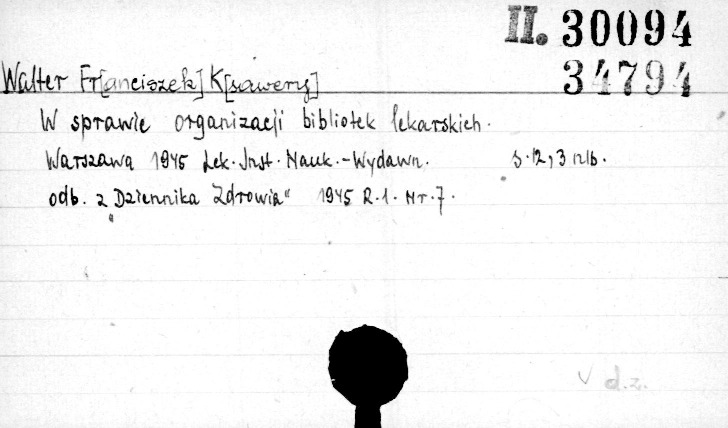 II. 30094
34794
Walter Fr[anciszek] K[sawery]
W sprawie organizacji bibliotek lekarskich.
Warszawa 1945 Lek. Inst. Nauk.-Wydawn. s. 12, 3 nlb.
odb. z „Dziennika Zdrowia" 1945 R.1. Nr.7.
v d.z.